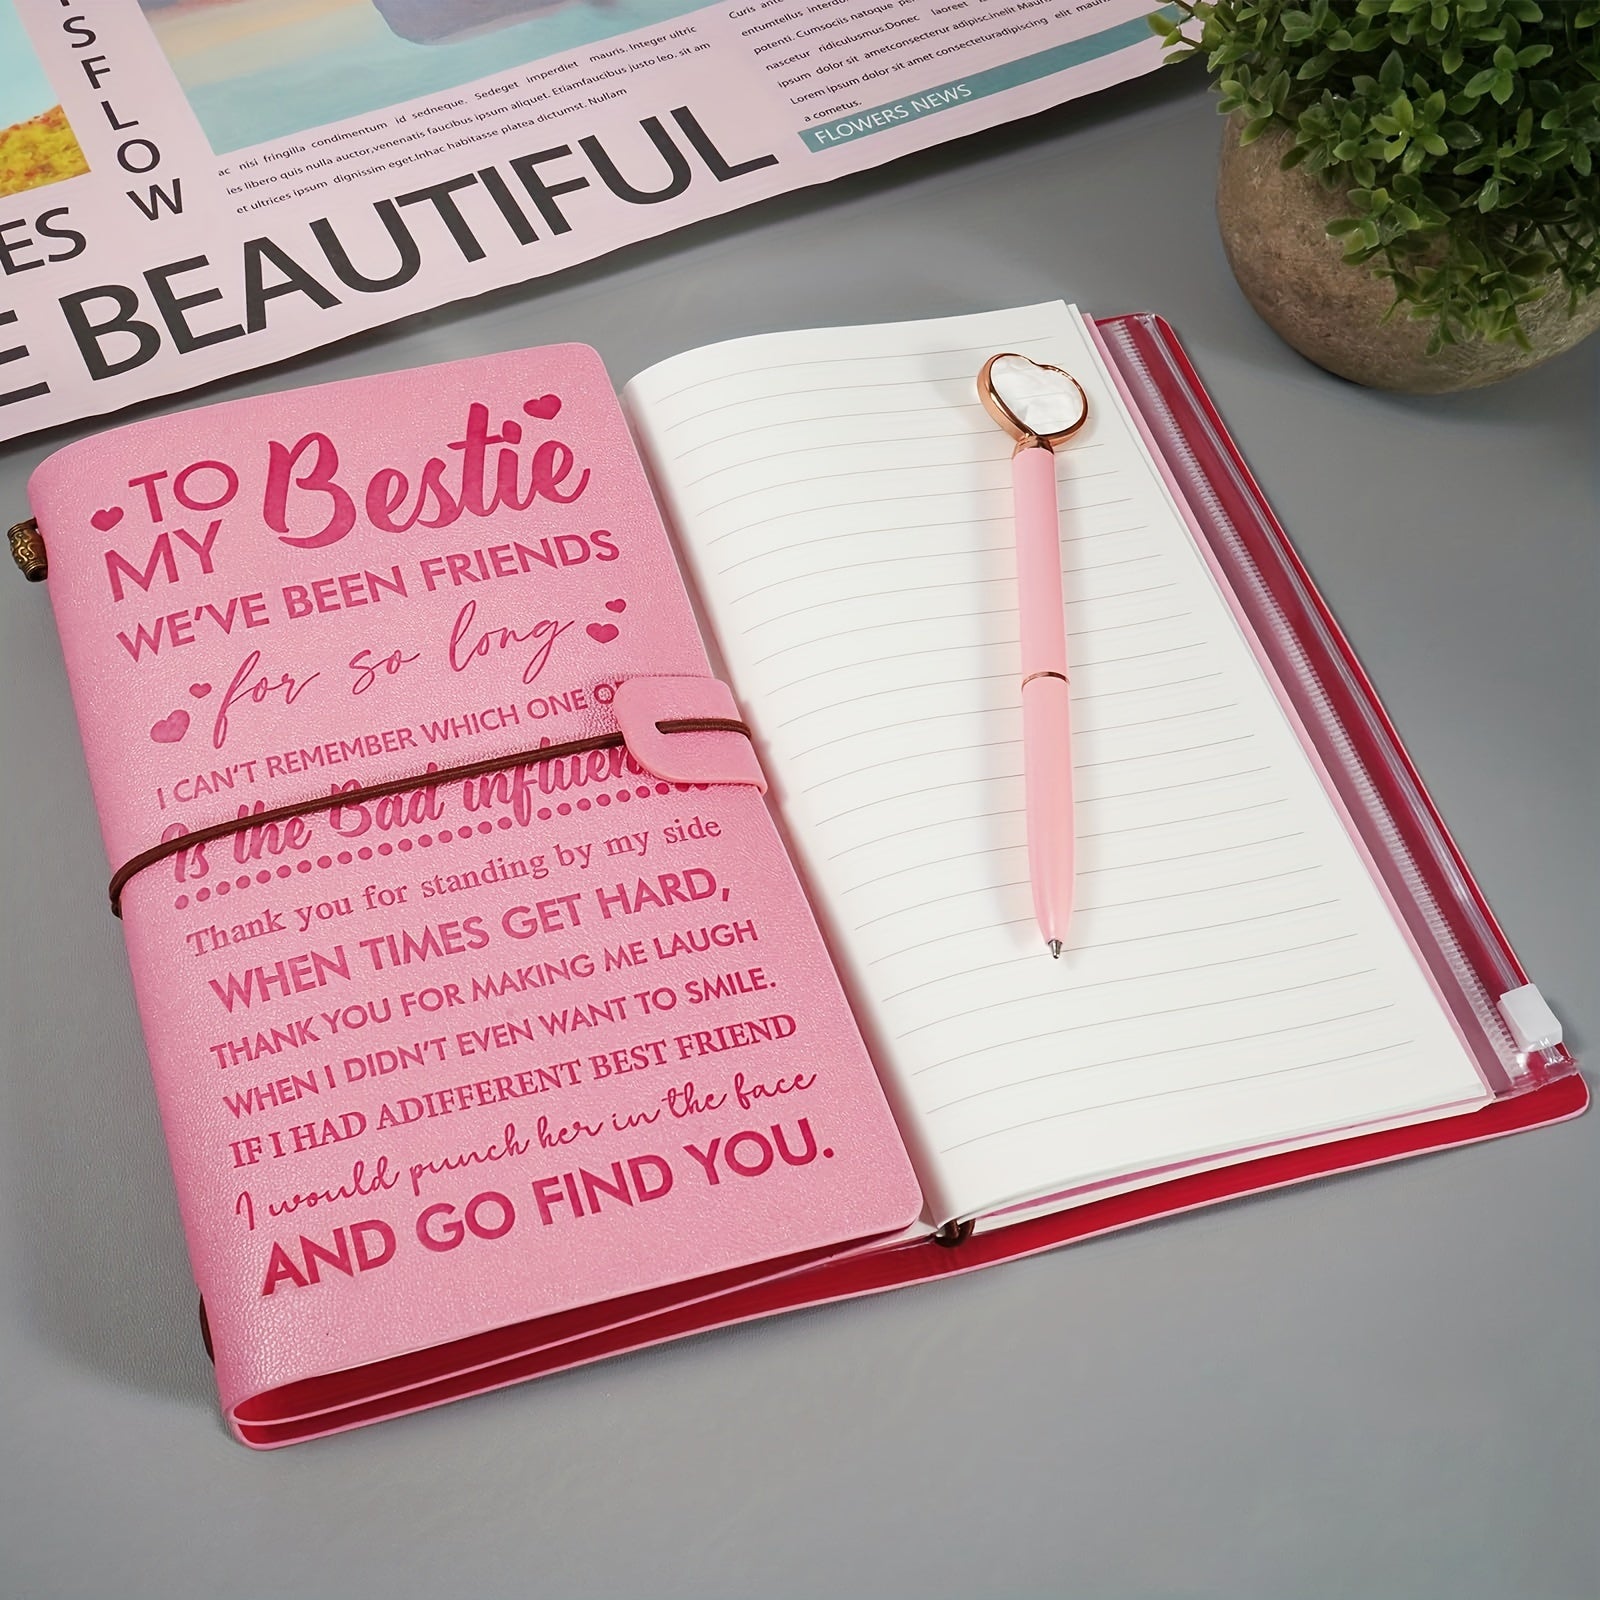 SFLOW
ES
E BEAUTIFUL
ac nisi fringilla condimentum id sedneque. Sedeget imperdiet mauris. Integer ultric
ies libero quis nulla auctor,venenatis faucibus ipsum aliquet. Etiamfaucibus justo leo, sit am
et ultrices ipsum dignissim eget.Inhac habitasse platea dictumst. Nullam
Curis ante
potenti. Cumsociis natoque
nascetur ridiculusmus.Donec laoreet
ipsum dolor sit ametconsectetur adipisc.inelit Mauri
Lorem ipsum dolor sit amet consecteturadipiscing elit
a cometus.
FLOWERS NEWS
TO MY Bestie
WE'VE BEEN FRIENDS
for so long
I CAN'T REMEMBER WHICH ONE
Is the Bad influen
Thank you for standing by my side
WHEN TIMES GET HARD,
THANK YOU FOR MAKING ME LAUGH
WHEN I DIDN'T EVEN WANT TO SMILE.
IF I HAD ADIFFERENT BEST FRIEND
I would punch her in the face
AND GO FIND YOU.